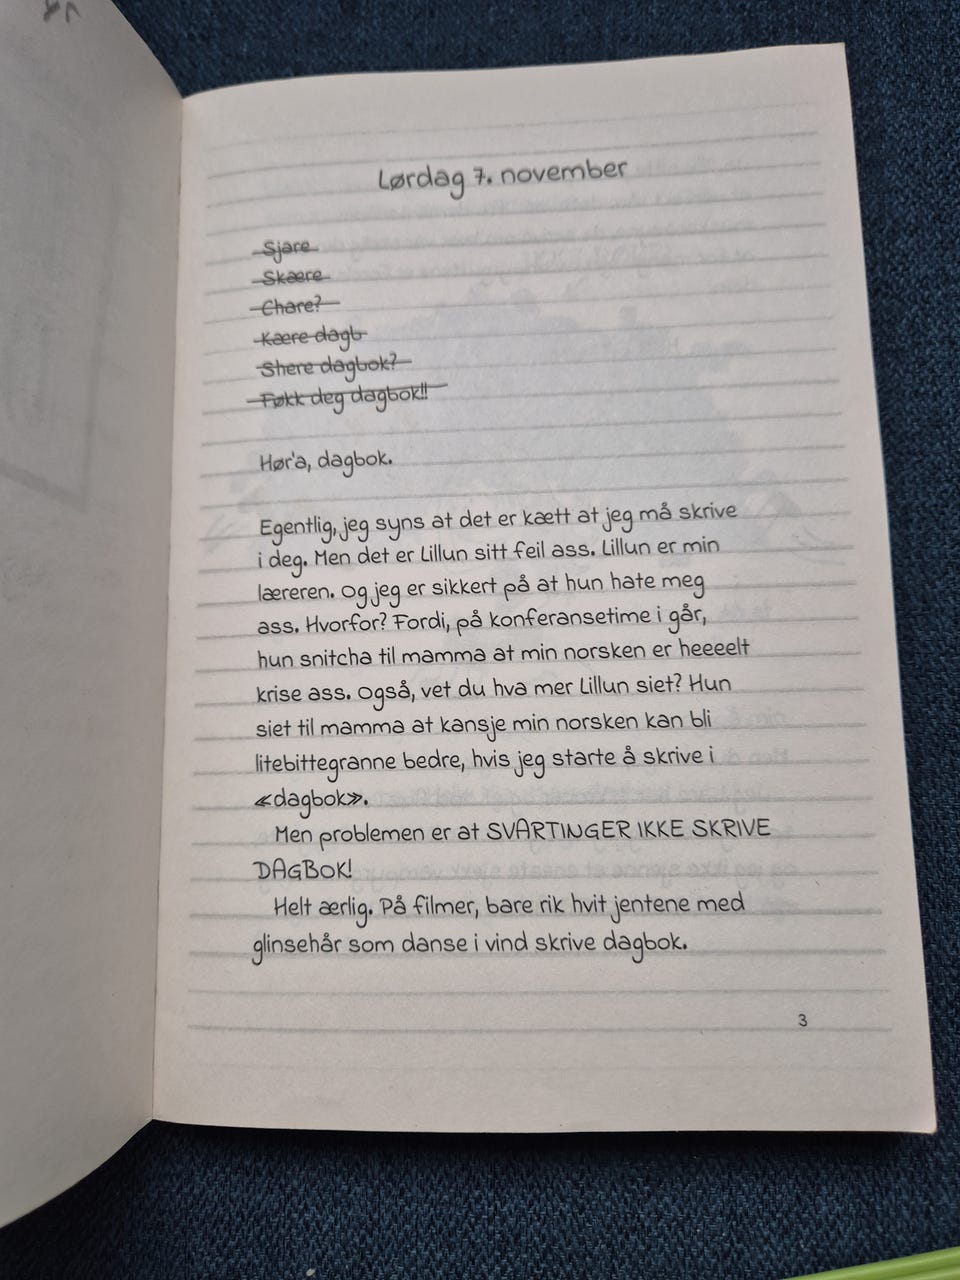 Lørdag 7. november
Sjære
Skære
Chære?
Kære dagb
Shere dagbok?
Føkk deg dagbok!!
Hør'a, dagbok.
Egentlig, jeg syns at det er kætt at jeg må skrive
i deg. Men det er Lillun sitt feil ass. Lillun er min
læreren. Og jeg er sikkert på at hun hate meg
ass. Hvorfor? Fordi, på konferansetime i går,
hun snitcha til mamma at min norsken er heeeelt
krise ass. Også, vet du hva mer Lillun siet? Hun
siet til mamma at kansje min norsken kan bli
litebittegranne bedre, hvis jeg starte å skrive i
«dagbok».
Men problemen er at SVARTINGER IKKE SKRIVE
DAGBOK!
Helt ærlig. På filmer, bare rik hvit jentene med
glinsehår som danse i vind skrive dagbok.
3